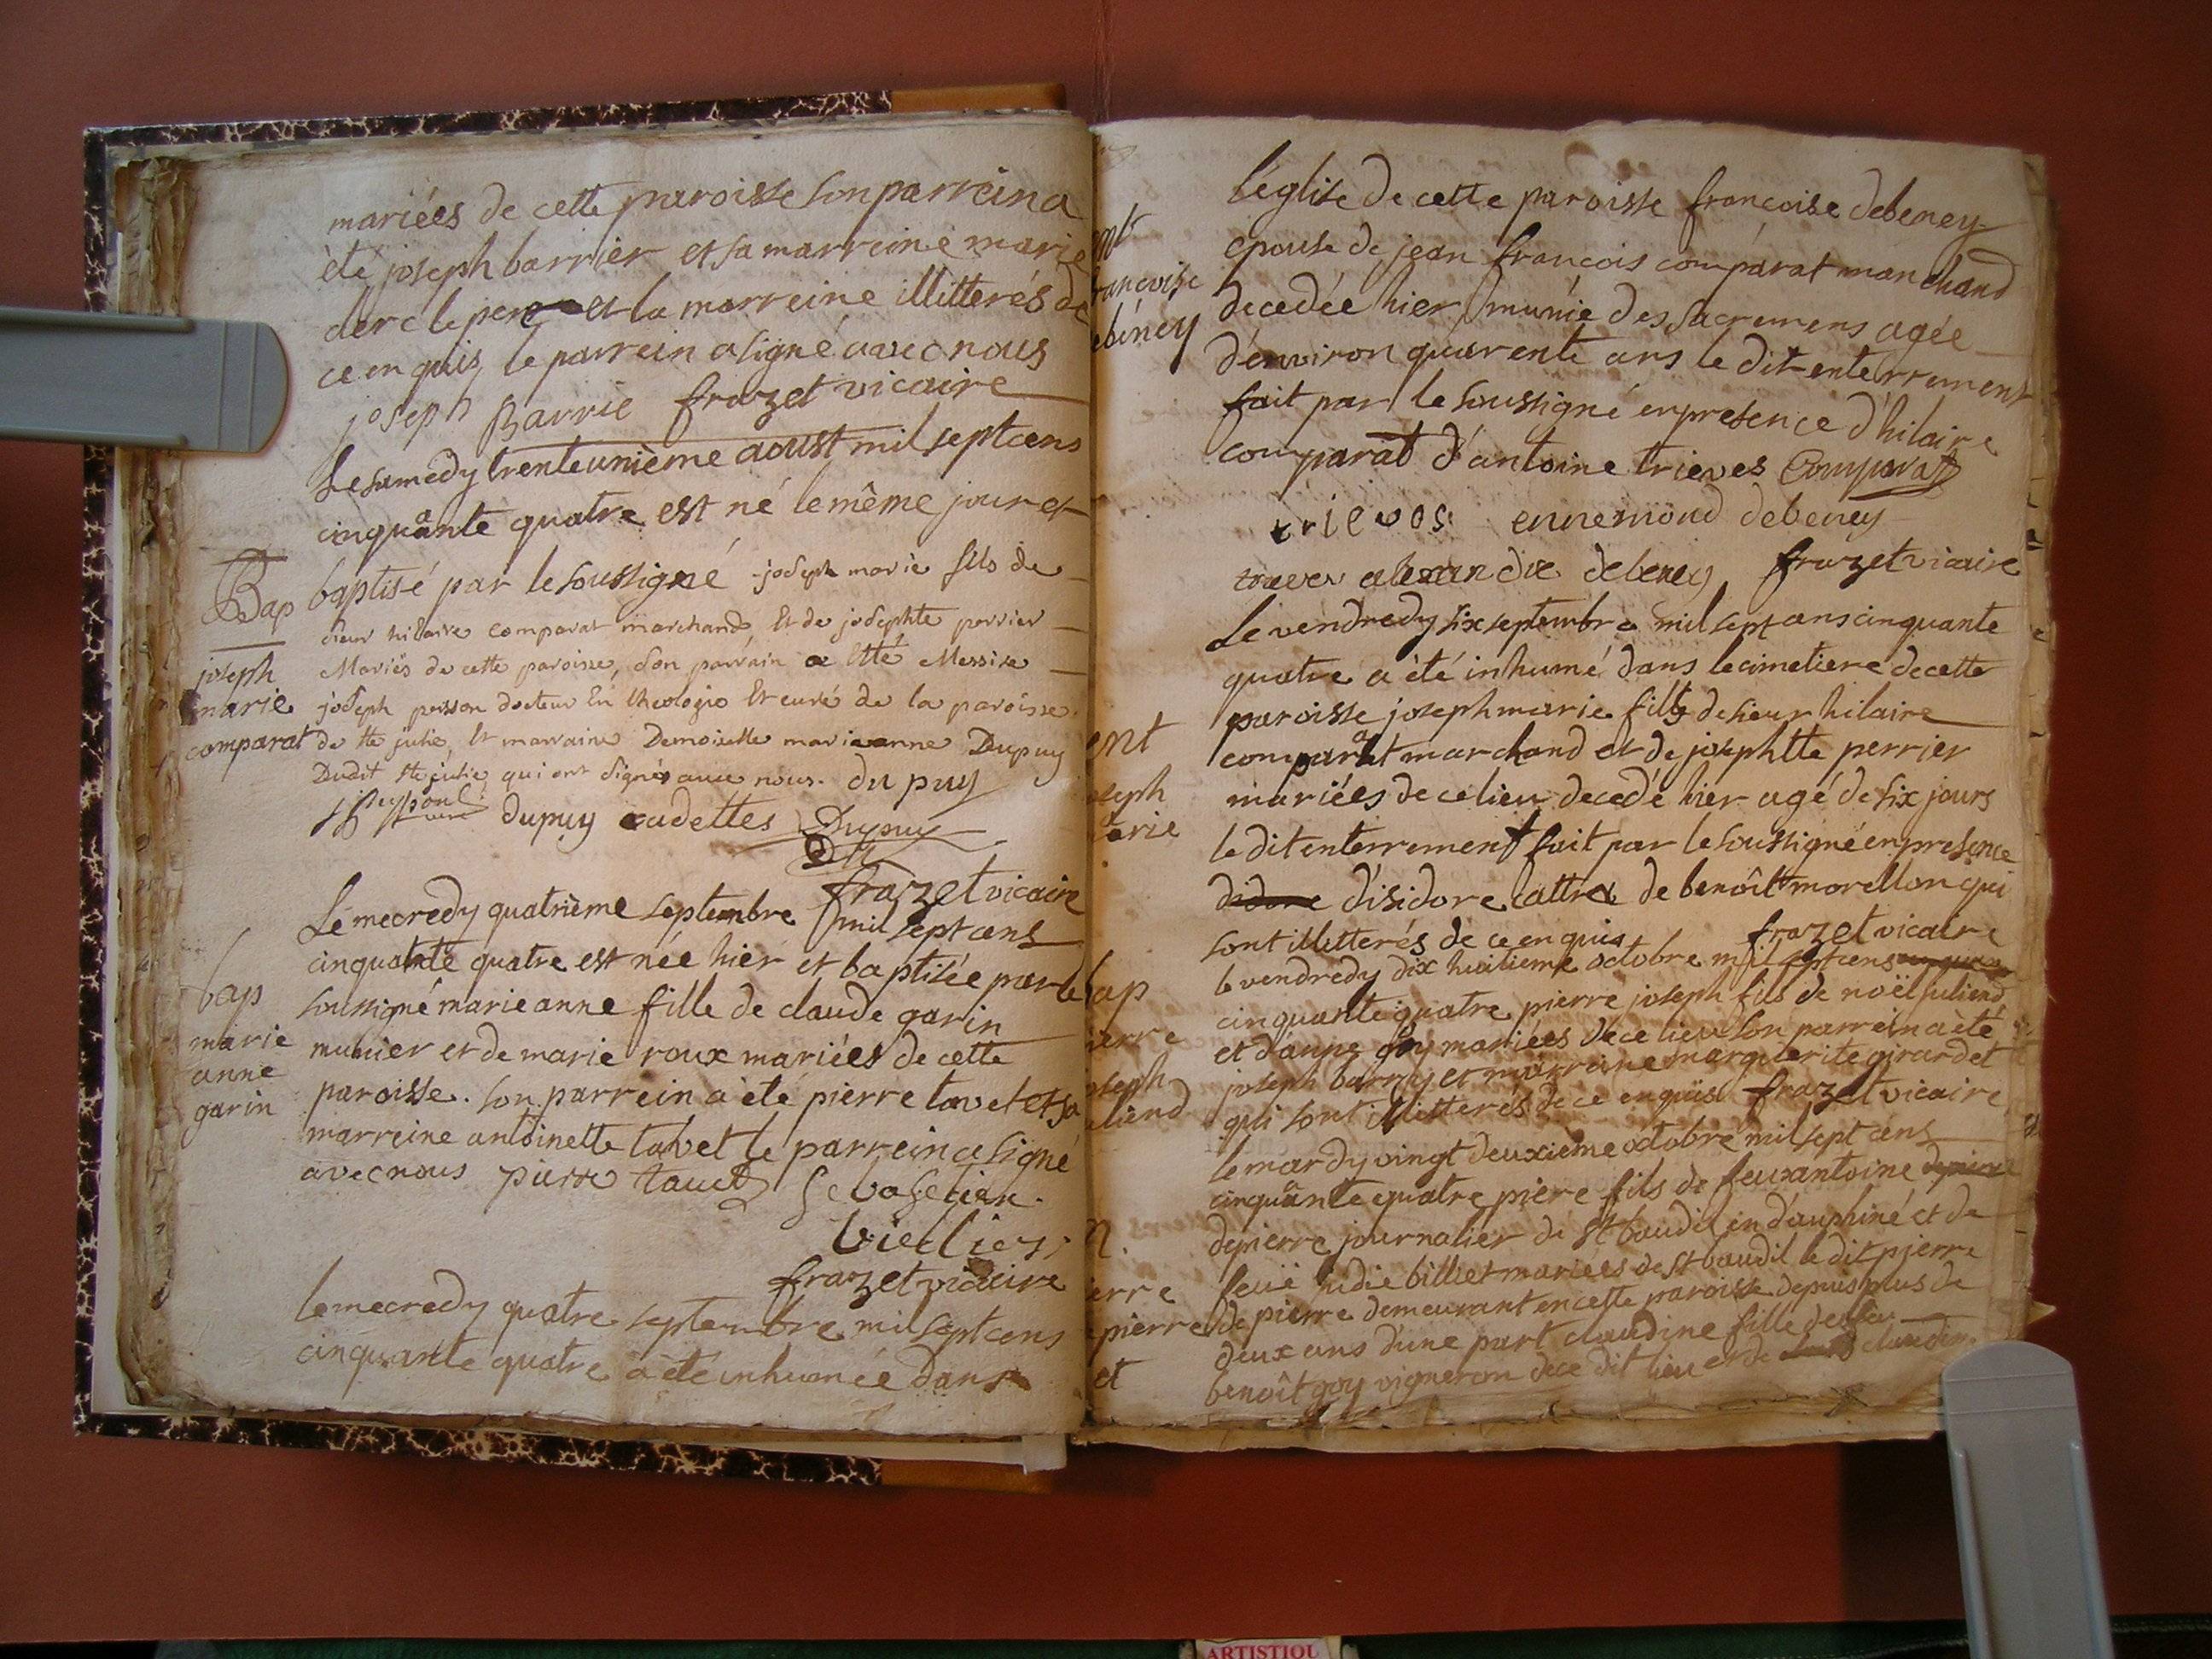 mariées de cette paroisse son parrein a
été joseph barrier et sa marreine marie
clerc le pere et la marreine illitterés de
ce enquis, le parrein a signé avec nous
joseph Barrie frazet vicaire
Le samedy trenteunième aoust mil sept cens
cinquante quatre est né le même jour et
Bap
baptisé par le soussigné joseph marie fils de
sieur hilaire comparat marchand, Et de josephte perrier
joseph
Mariés de cette paroisse, son parrain a Etté Messire
marie
joseph peisson docteur En theologie Et curé de la paroisse
comparat
de ste julie, Et marraine Demoiselle marieanne Dupuy
Dudit ste julie qui ont signés avec nous. du puy
dupuy cadettes Dupuy
frazet vicaire
Le mecredy quatrième septembre mil sept cens
cinquante quatre est née hier et baptisée par le
bap
soussigné marie anne fille de claude garin
marie
munier et de marie roux mariées de cette
anne
garin
paroisse. son parrein a été pierre tavet et sa
marreine antoinette tavet le parrein a signé
avec nous pierre tauet Sebastien
frazet vicaire
le mecredy quatre septembre mil sept cens
cinquante quatre a été inhumée dans
l'église de cette paroisse francoise debeney
epouse de jean francois comparat marchand
francoise
decedée hier munie des sacremens agée
debeney
d'environ quarente ans le dit enterrement
fait par le soussigné en presence d'hilaire
comparat d'antoine trieves Comparat
trieves ennemond debeney
alexandre debeney frazet vicaire
Le vendredy six septembre mil sept cens cinquante
quatre a été inhumé dans le cimetiere de cette
paroisse joseph marie fils de sieur hilaire
ent
comparat marchand et de josephtte perrier
joseph
mariées de ce lieu decedé hier agé de six jours
marie
le dit enterrement fait par le soussigné en presence
didore d'isidore lattra de benoît morellon qui
sont illitterés de ce enquis frazet vicaire
le vendredy dix huitieme octobre mil sept cens
bap
cinquante quatre pierre joseph fils de noël juliend
pierre
et d'anne goy mariées de ce lieu son parrein a été
joseph
joseph barry et marreine marguerite girardet
juliend
qui sont illitterés de ce enquis frazet vicaire
le mardy vingt deuxieme octobre mil sept cens
cinquante quatre piere fils de feu antoine depierre
depierre journalier de st baudil en dauphiné et de
pierre
feuë judie billiet mariées de st baudil le dit pierre
depierre
de pierre demeurant en cette paroisse depuis plus de
deux ans d'une part claudine fille de feu
et
benoît goy vigneron de ce dit lieu et de claudine
ARTISTIQU